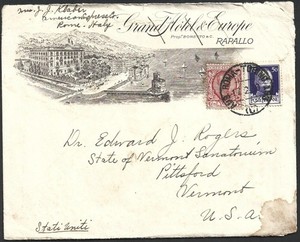 Mrs. J. J. Kleber
American Express Co.
Rome - Italy
Grand Hôtel & Europe
RAPALLO
Dr. Edward J. Rogers
State of Vermont Sanatorium
Pittsford
Vermont
U.S.A.
Stati Uniti